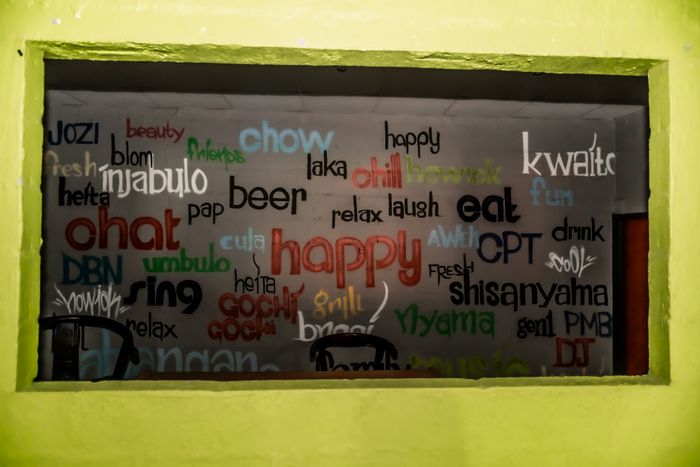 JOZI beauty chow happy kwaito
blom friends
fresh laka chill howick
injabulo fun
hefta beer
pap relax laugh eat
chat cula happy AWEH CPT drink
DBN umbulo FRESH cool
howick sing hefta shisanyama
GOCHI grill
relax GOCHI braai nyama gen1 PMB
DJ
family music